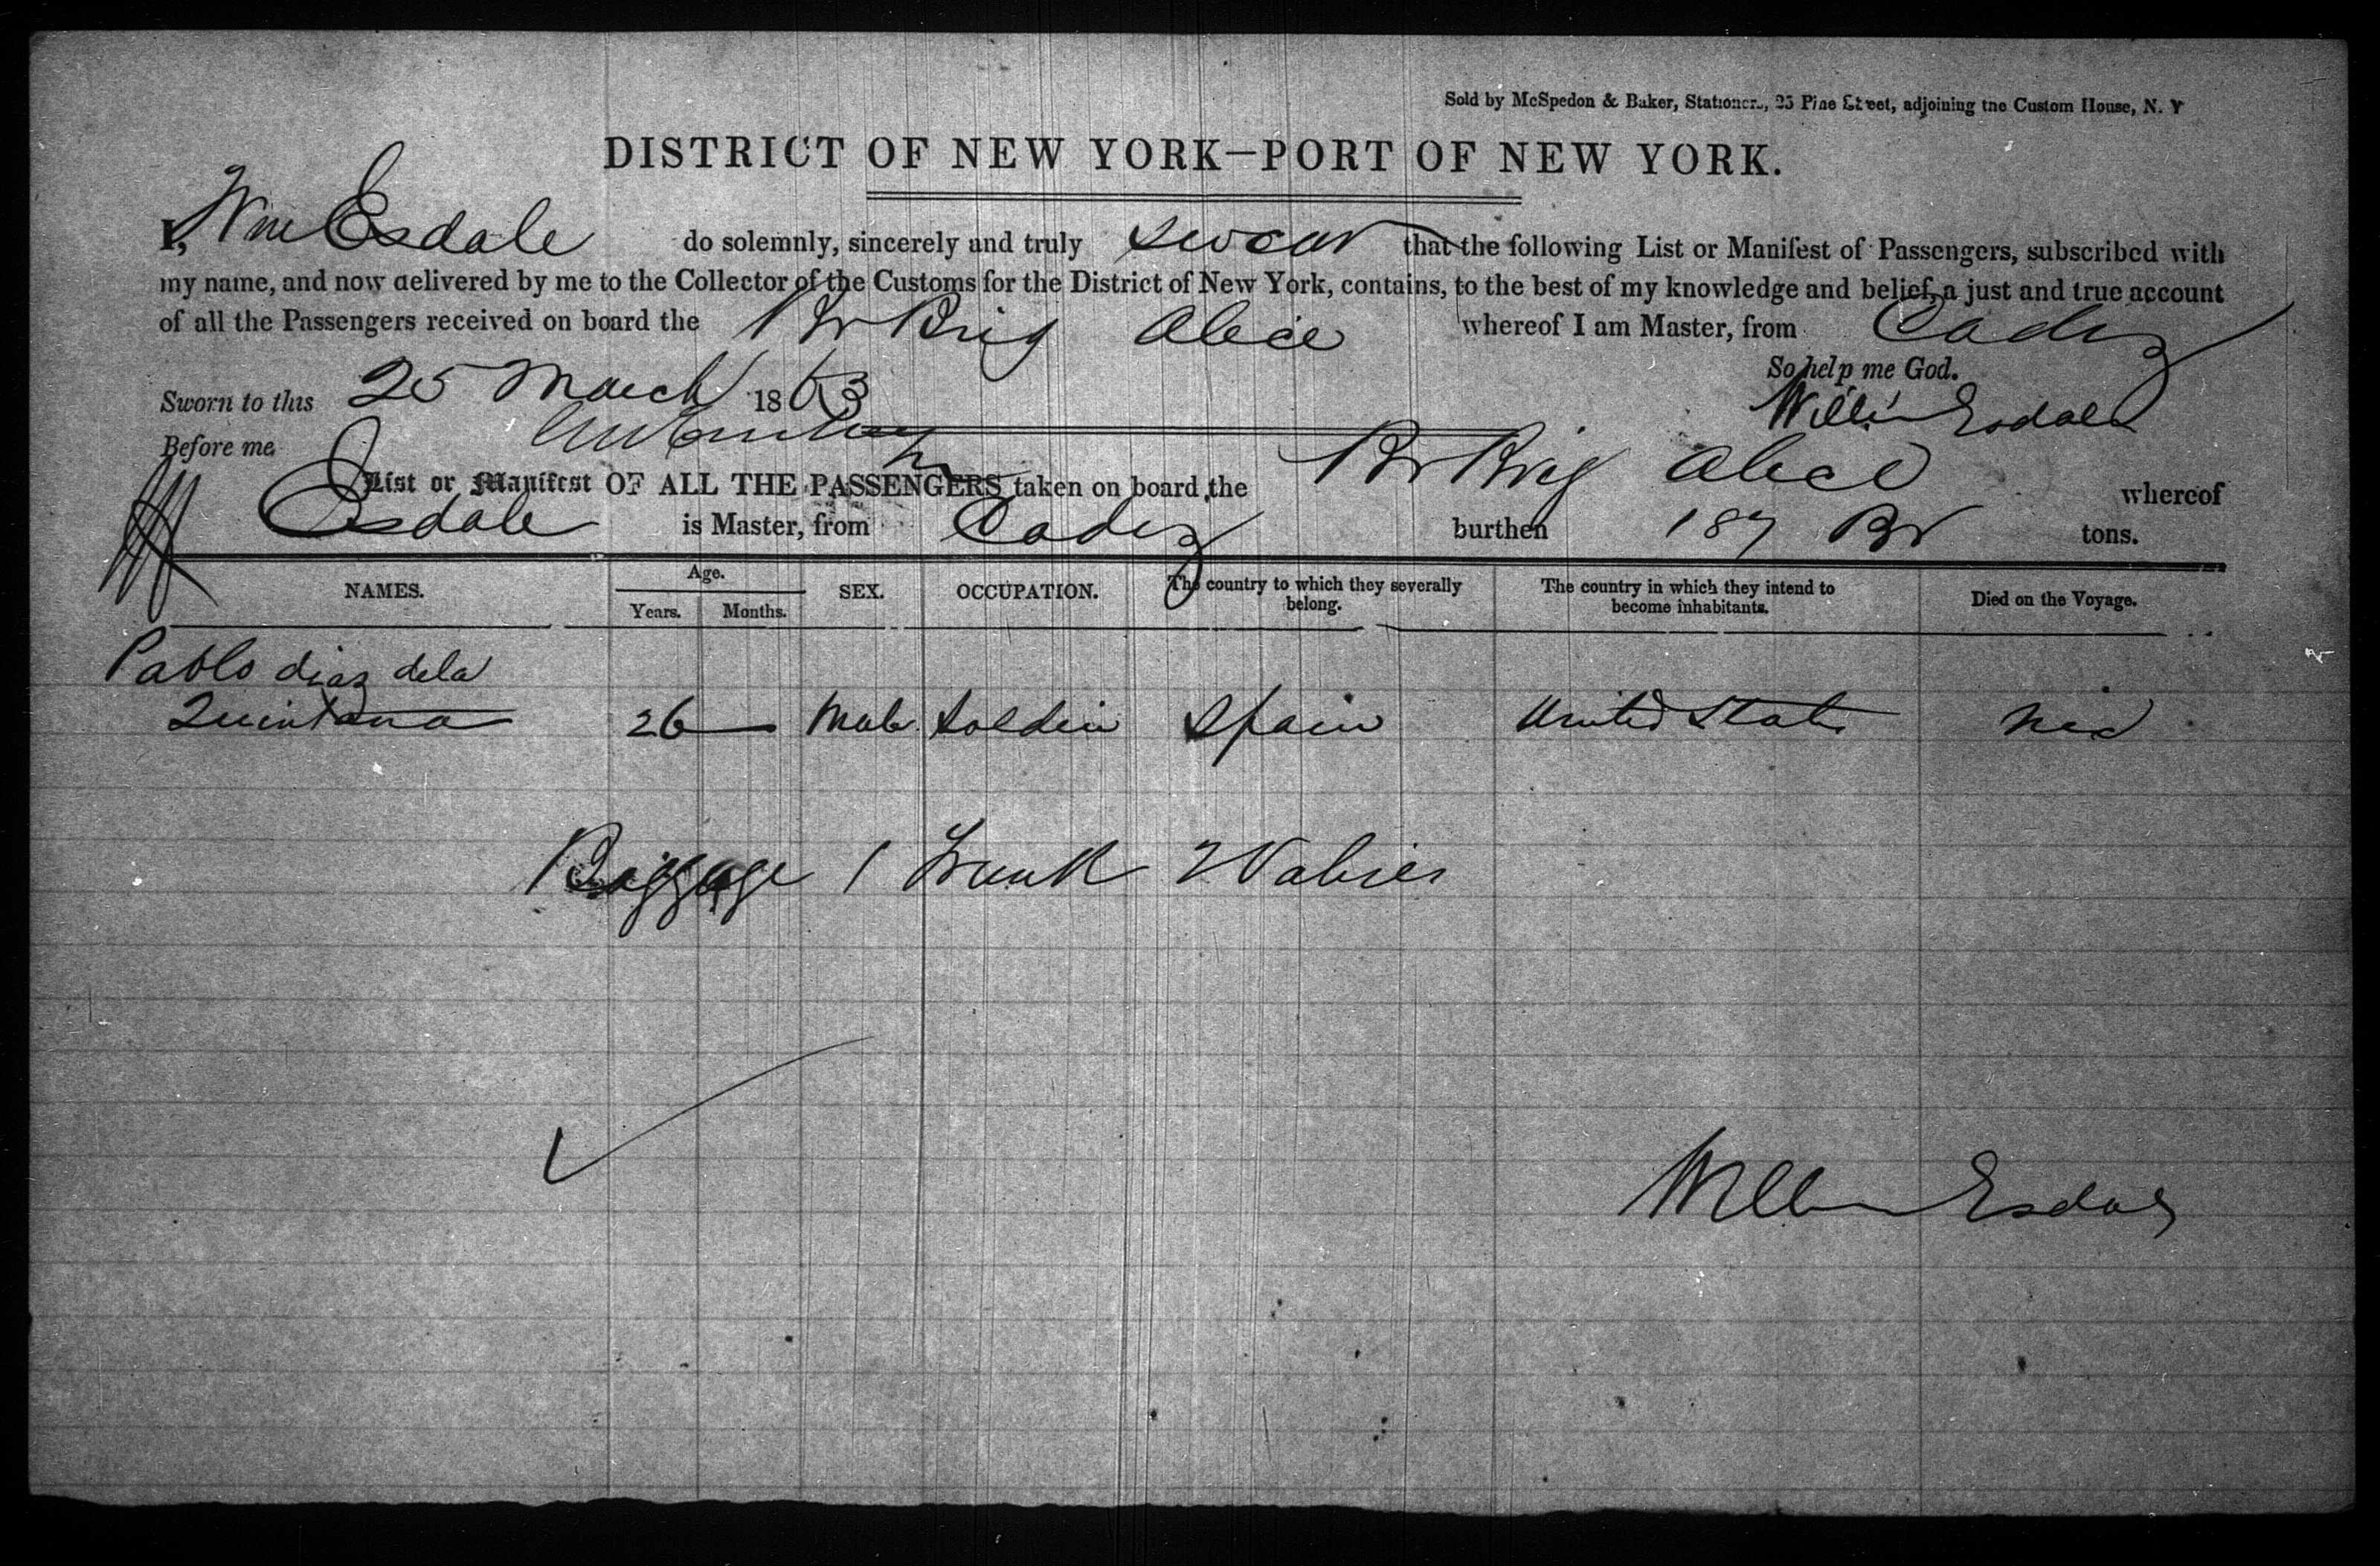 Sold by McSpedon & Baker, Stationers, 25 Pine Street, adjoining the Custom House, N. Y
DISTRICT OF NEW YORK—PORT OF NEW YORK.
I, Wm Esdale do solemnly, sincerely and truly swear that the following List or Manifest of Passengers, subscribed with
my name, and now delivered by me to the Collector of the Customs for the District of New York, contains, to the best of my knowledge and belief, a just and true account
of all the Passengers received on board the Br Brig Alice whereof I am Master, from Cadiz
So help me God.
Sworn to this 25 March 1863
Esdale
Before me
List or Manifest OF ALL THE PASSENGERS taken on board the Br Brig Alice whereof
Esdale is Master, from Cadiz burthen 187 Br tons.
NAMES. Age. Years. Months. SEX. OCCUPATION. The country to which they severally belong. The country in which they intend to become inhabitants. Died on the Voyage.
Pablo diaz dela
Quintana 26 Male Soldier Spain United States
Baggage 1 Trunk
Esdale